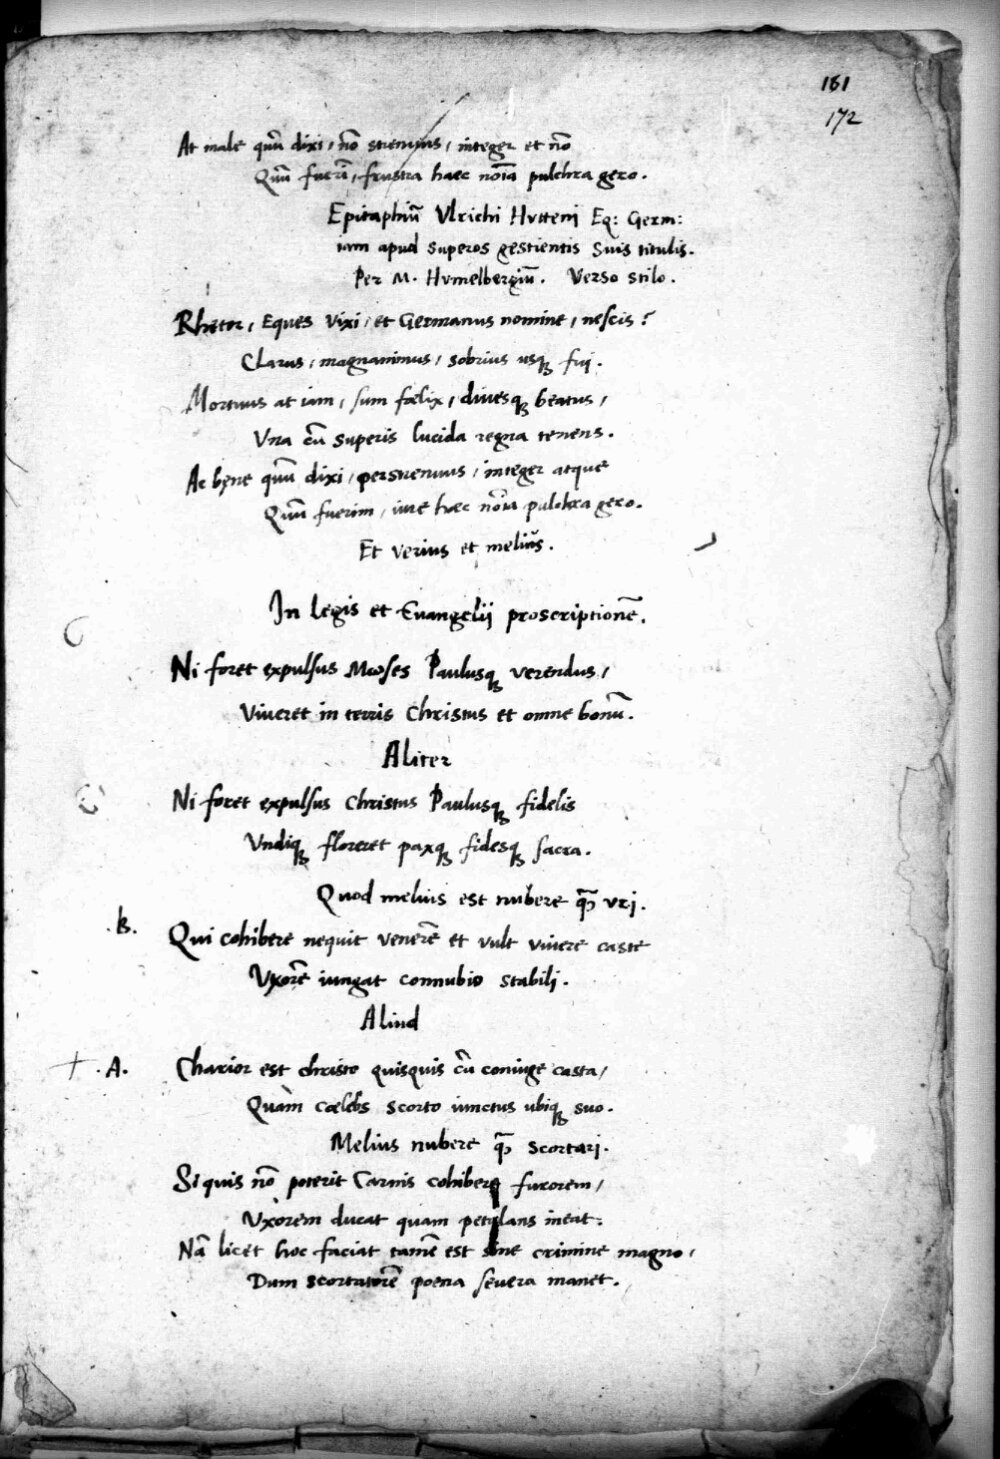 181
172
At male quū dixi, nō strenuus, integer et nō
Quū fueri, frustra haec nōīa pulchra gero.
Epitaphiū Vlrichi Hutteni Eq: Germ:
iam apud superos gestientis suis titulis.
Per M. Humelbergiū. Verso stilo.
Rhetor, Eques vixi, et Germanus nomine, nescis?
Clarus, magnanimus, sobrius usqꝫ fui.
Mortuus at iam, sum fœlix, diuesqꝫ beatus,
Vna cū superis lucida regna tenens.
Ac bene quū dixi, perstrenuus, integer atque
Quū fuerim, iure haec nōīa pulchra gero.
Et verius et melius.
In legis et Euangelij proscriptionē.
Ni foret expulsus Moses Paulusqꝫ verendus,
Viueret in terris Christus et omne bonū.
Aliter
Ni foret expulsus Christus Paulusqꝫ fidelis
Vndiqꝫ floreret paxqꝫ fidesqꝫ sacra.
Quod melius est nubere qꝫ̄ vri.
.B. Qui cohibere nequit venerē et vult viuere caste
Vxorē iungat connubio stabili.
Aliud
+ .A. Charior est christo quisquis cū coniuge casta,
Quàm cœlebs scorto iunctus ubiqꝫ suo.
Melius nubere qꝫ̄ scortari.
Si quis nō poterit Carnis cohibere furorem,
Vxorem ducat quam petulans ineat:
Nā licet hoc faciat tamē est sine crimine magno,
Dum scortatorē poena seuera manet.